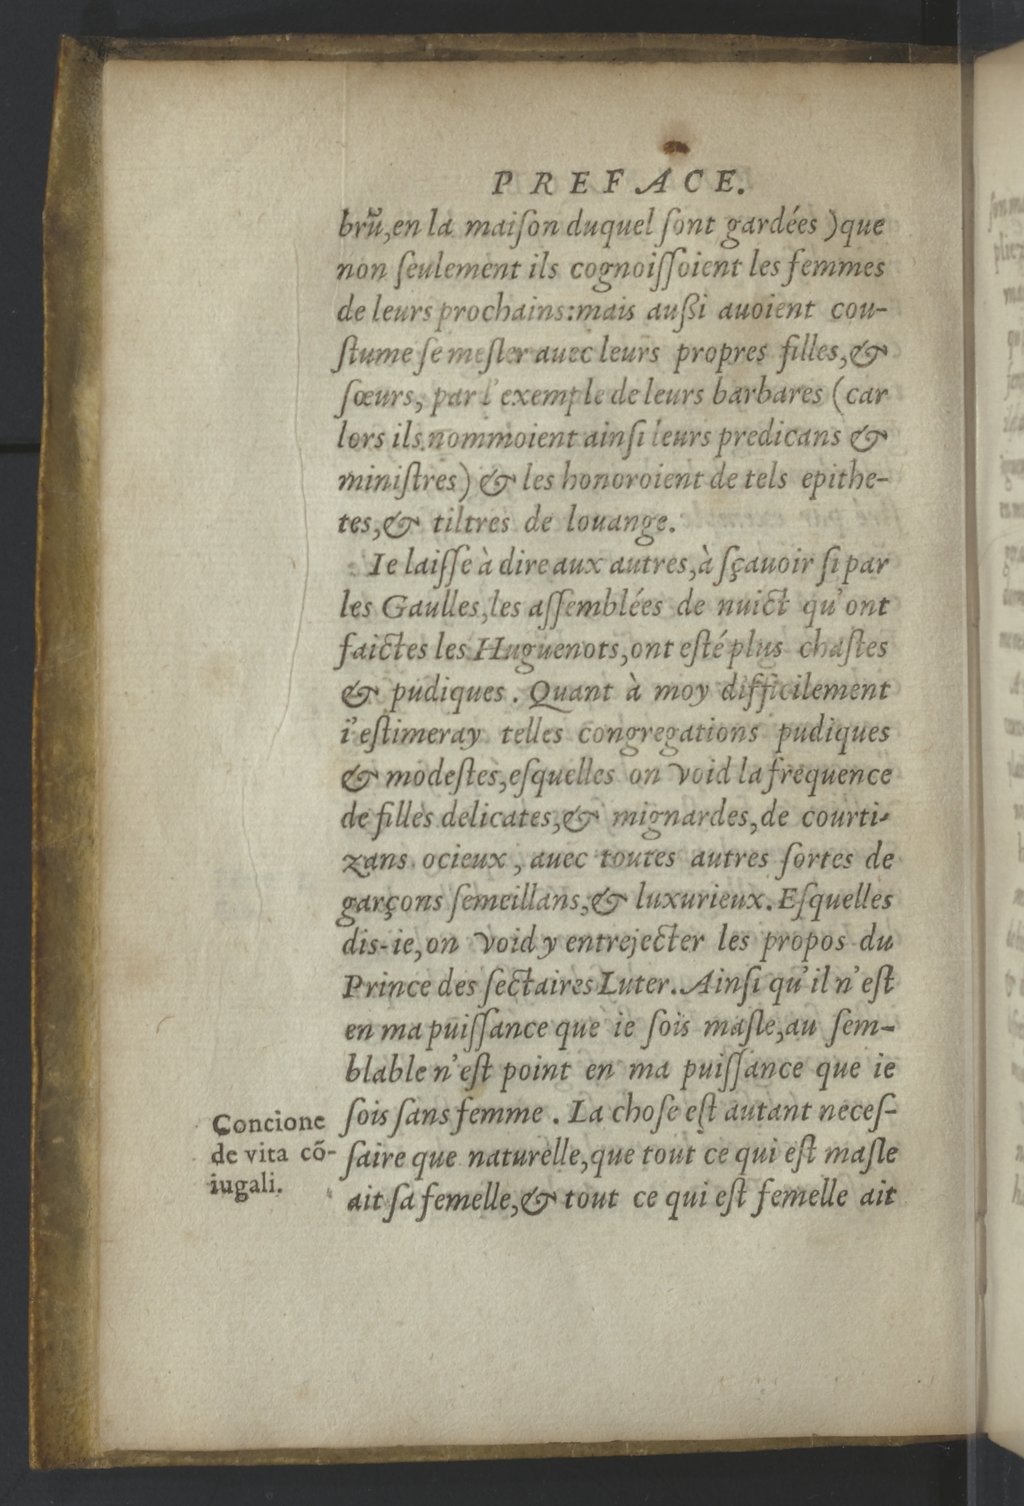 PREFACE.
brũ, en la maiſon duquel ſont gardées) que
non ſeulement ils cognoiſſoient les femmes
de leurs prochains: mais außi auoient cou-
ſtume ſe meſler auec leurs propres filles, &
ſœurs, par l'exemple de leurs barbares (car
lors ils nommoient ainſi leurs predicans &
miniſtres) & les honoroient de tels epithe-
tes, & tiltres de louange.
Ie laiſſe à dire aux autres, à ſçauoir ſi par
les Gaulles, les aſſemblées de nuict qu'ont
faictes les Huguenots, ont eſté plus chaſtes
& pudiques. Quant à moy difficilement
i'eſtimeray telles congregations pudiques
& modeſtes, eſquelles on void la frequence
de filles delicates, & mignardes, de courti-
zans ocieux, auec toutes autres ſortes de
garçons ſemeillans, & luxurieux. Eſquelles
dis-ie, on void y entrejecter les propos du
Prince des ſectaires Luter. Ainſi qu'il n'eſt
en ma puiſſance que ie ſois maſle, au ſem-
blable n'eſt point en ma puiſſance que ie
ſois ſans femme. La choſe eſt autant neceſ-
ſaire que naturelle, que tout ce qui eſt maſle
ait ſa femelle, & tout ce qui eſt femelle ait
Concione
de vita cō-
iugali.